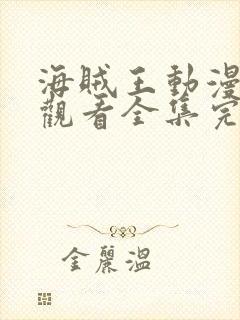 海賊王動漫
觀看全集完
金麗溫